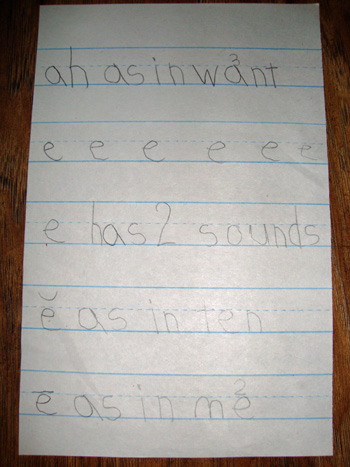 ah as in wa³nt
e e e e e e
e has 2 sounds
ĕ as in ten
ē as in me²